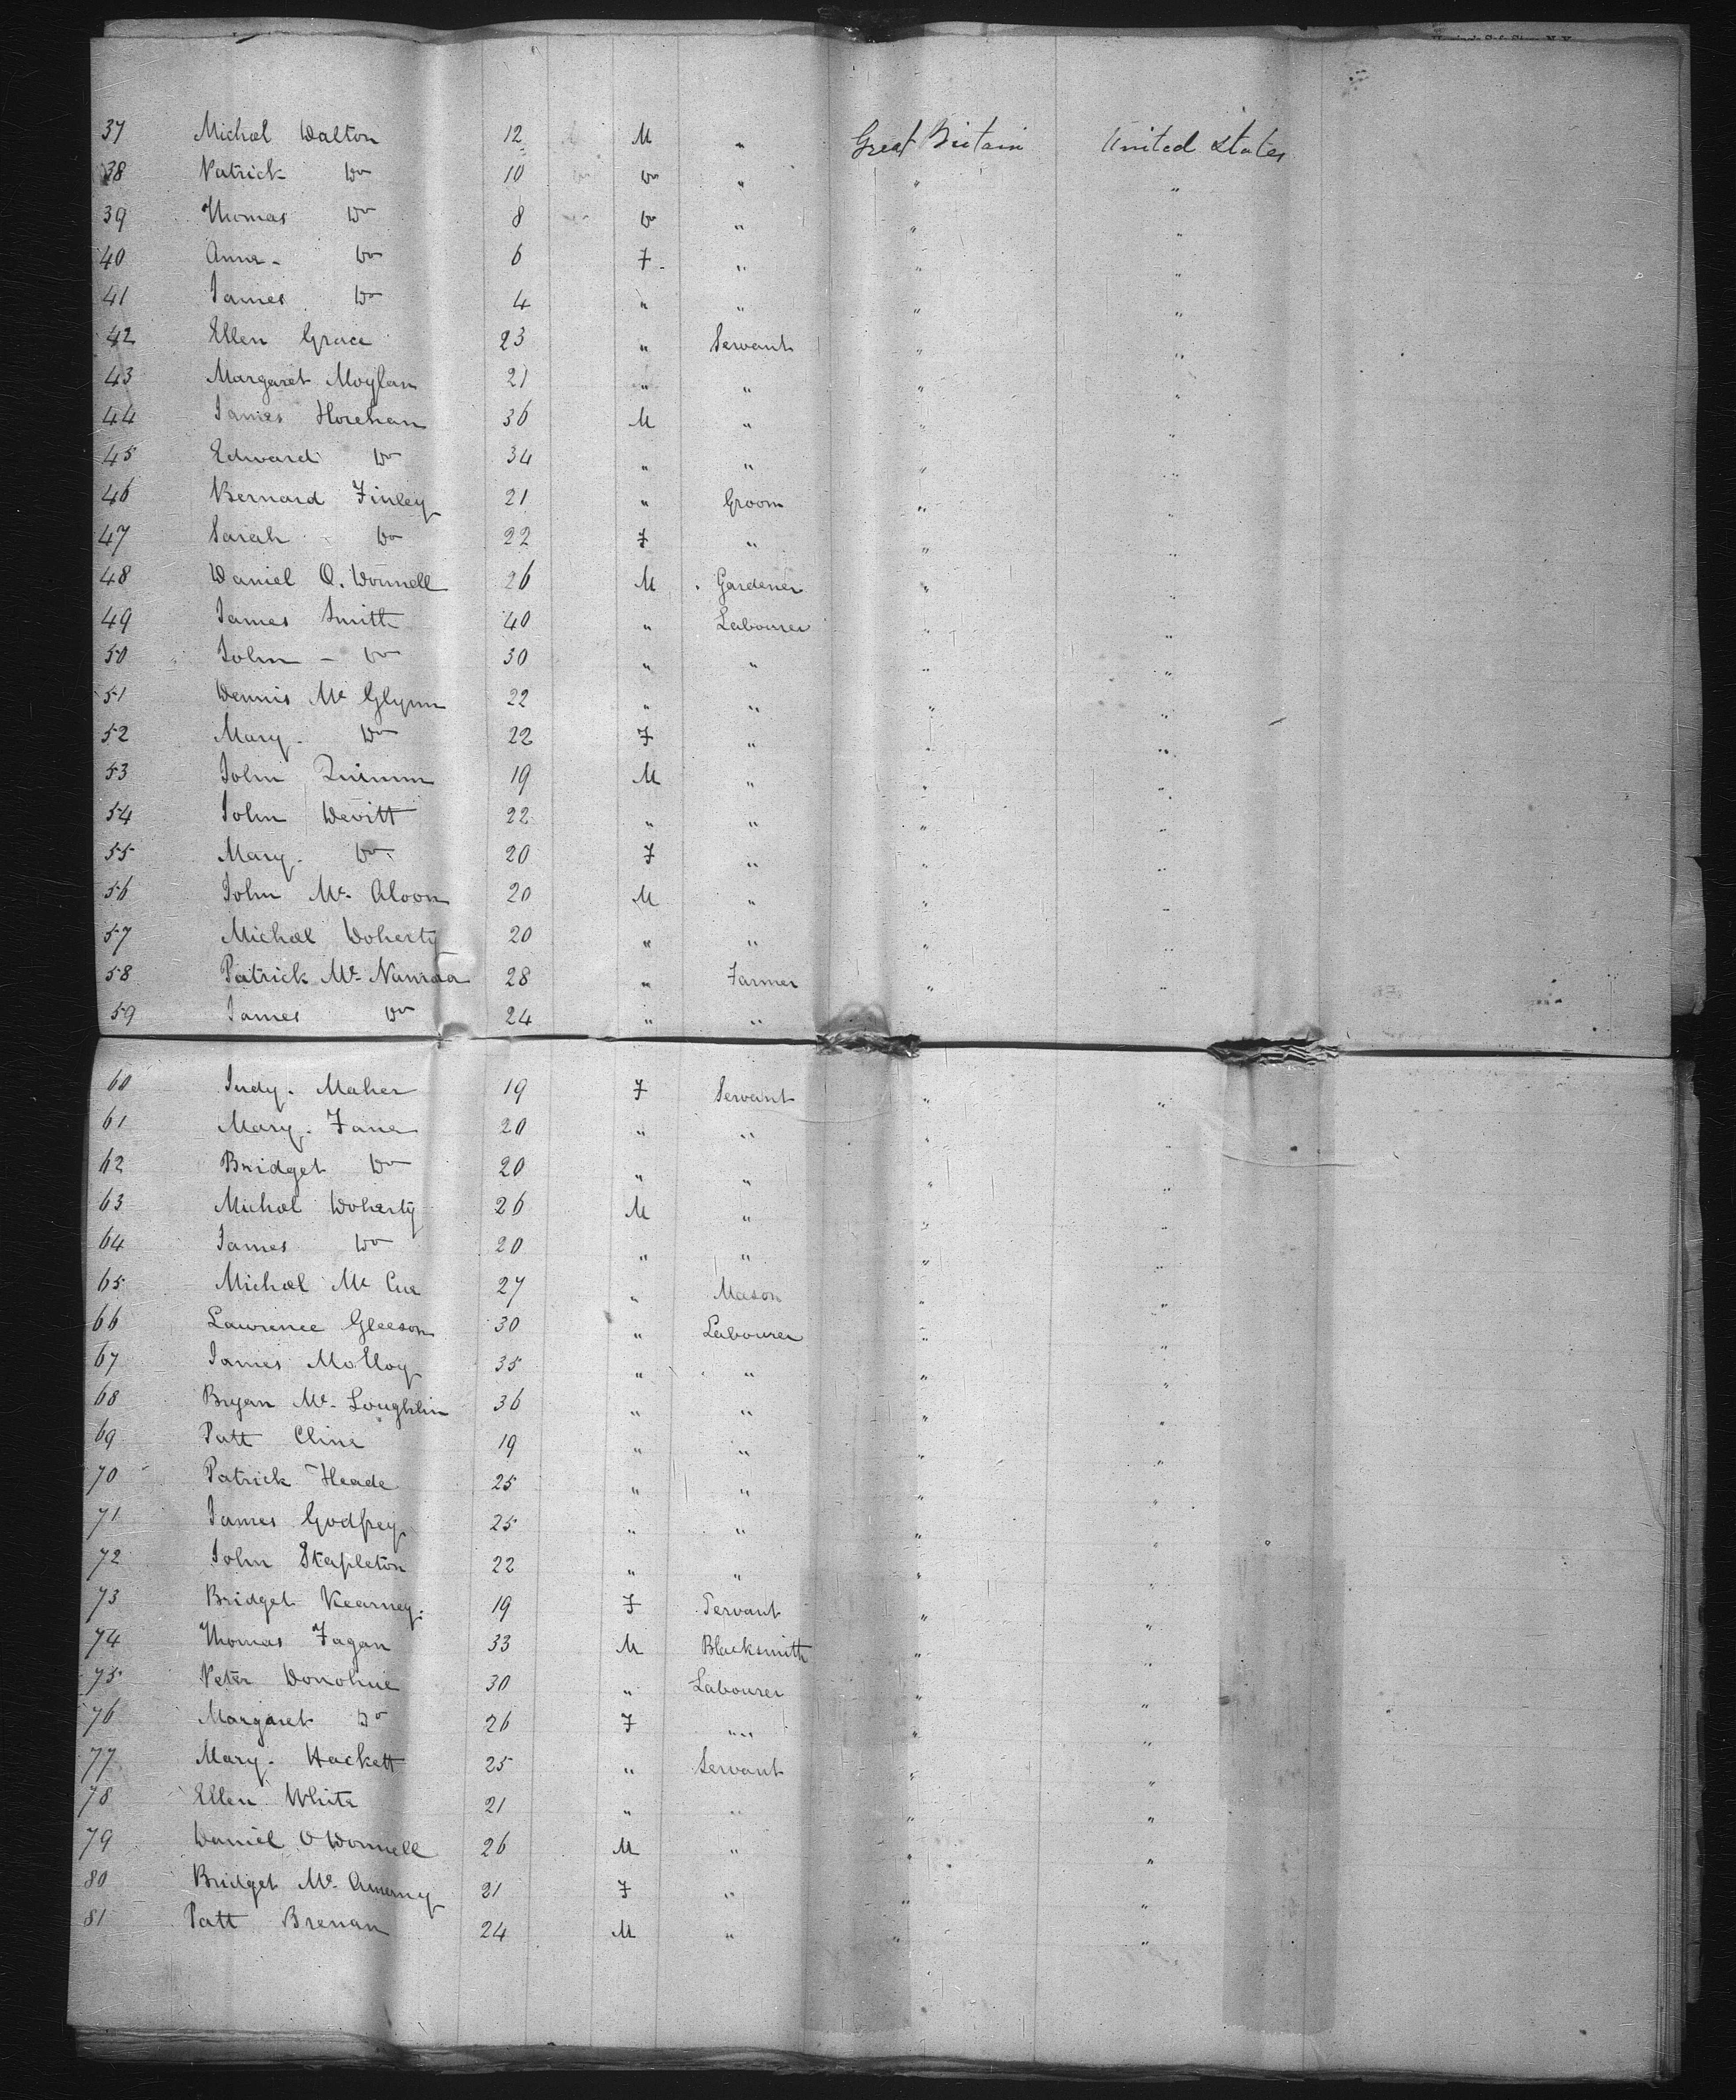 37 Michael Walton 12 M " Great Britain United States
38 Patrick Do 10 Do " " "
39 Thomas Do 8 Do " " "
40 Anna - Do 6 F - " " "
41 James Do 4 " " " "
42 Ellen Grace 23 " Servant " "
43 Margaret Moylan 21 " " " "
44 James Horehan 36 M " " "
45 Edward Do 34 " " " "
46 Bernard Finley 21 " Groom " "
47 Sarah Do 22 F " " "
48 Daniel O. Donnell 26 M Gardener " "
49 James Smith 40 " Labourer " "
50 John - Do 30 " " " "
51 Dennis Mc Glynn 22 " " " "
52 Mary - Do 22 F " " "
53 John Quinnn 19 M " " "
54 John Devitt 22 " " " "
55 Mary - Do 20 F " " "
56 John Mc Aloon 20 M " " "
57 Michael Doherty 20 " " " "
58 Patrick Mc Namara 28 " Farmer " "
59 James Do 24 " "
60 Judy. Maher 19 F Servant " "
61 Mary. Fane 20 " " " "
62 Bridget Do 20 " " " "
63 Michael Doherty 26 M " " "
64 James Do 20 " " " "
65 Michael Mc Cue 27 " Mason " "
66 Lawrence Gleeson 30 " Labourer " "
67 James Molloy 35 " " " "
68 Bryan Mc Loughlin 36 " " " "
69 Patt Cline 19 " " " "
70 Patrick Heade 25 " " " "
71 James Godfrey 25 " " " "
72 John Stapleton 22 " " " "
73 Bridget Kearney. 19 F Servant " "
74 Thomas Fagan 33 M Blacksmith " "
75 Peter Donohue 30 " Labourer " "
76 Margaret Do 26 F " " "
77 Mary - Hackett 25 " Servant " "
78 Ellen White 21 " " " "
79 Daniel O Donnell 26 M " " "
80 Bridget Mc 21 F " " "
81 Patt Brenan 24 M " " "